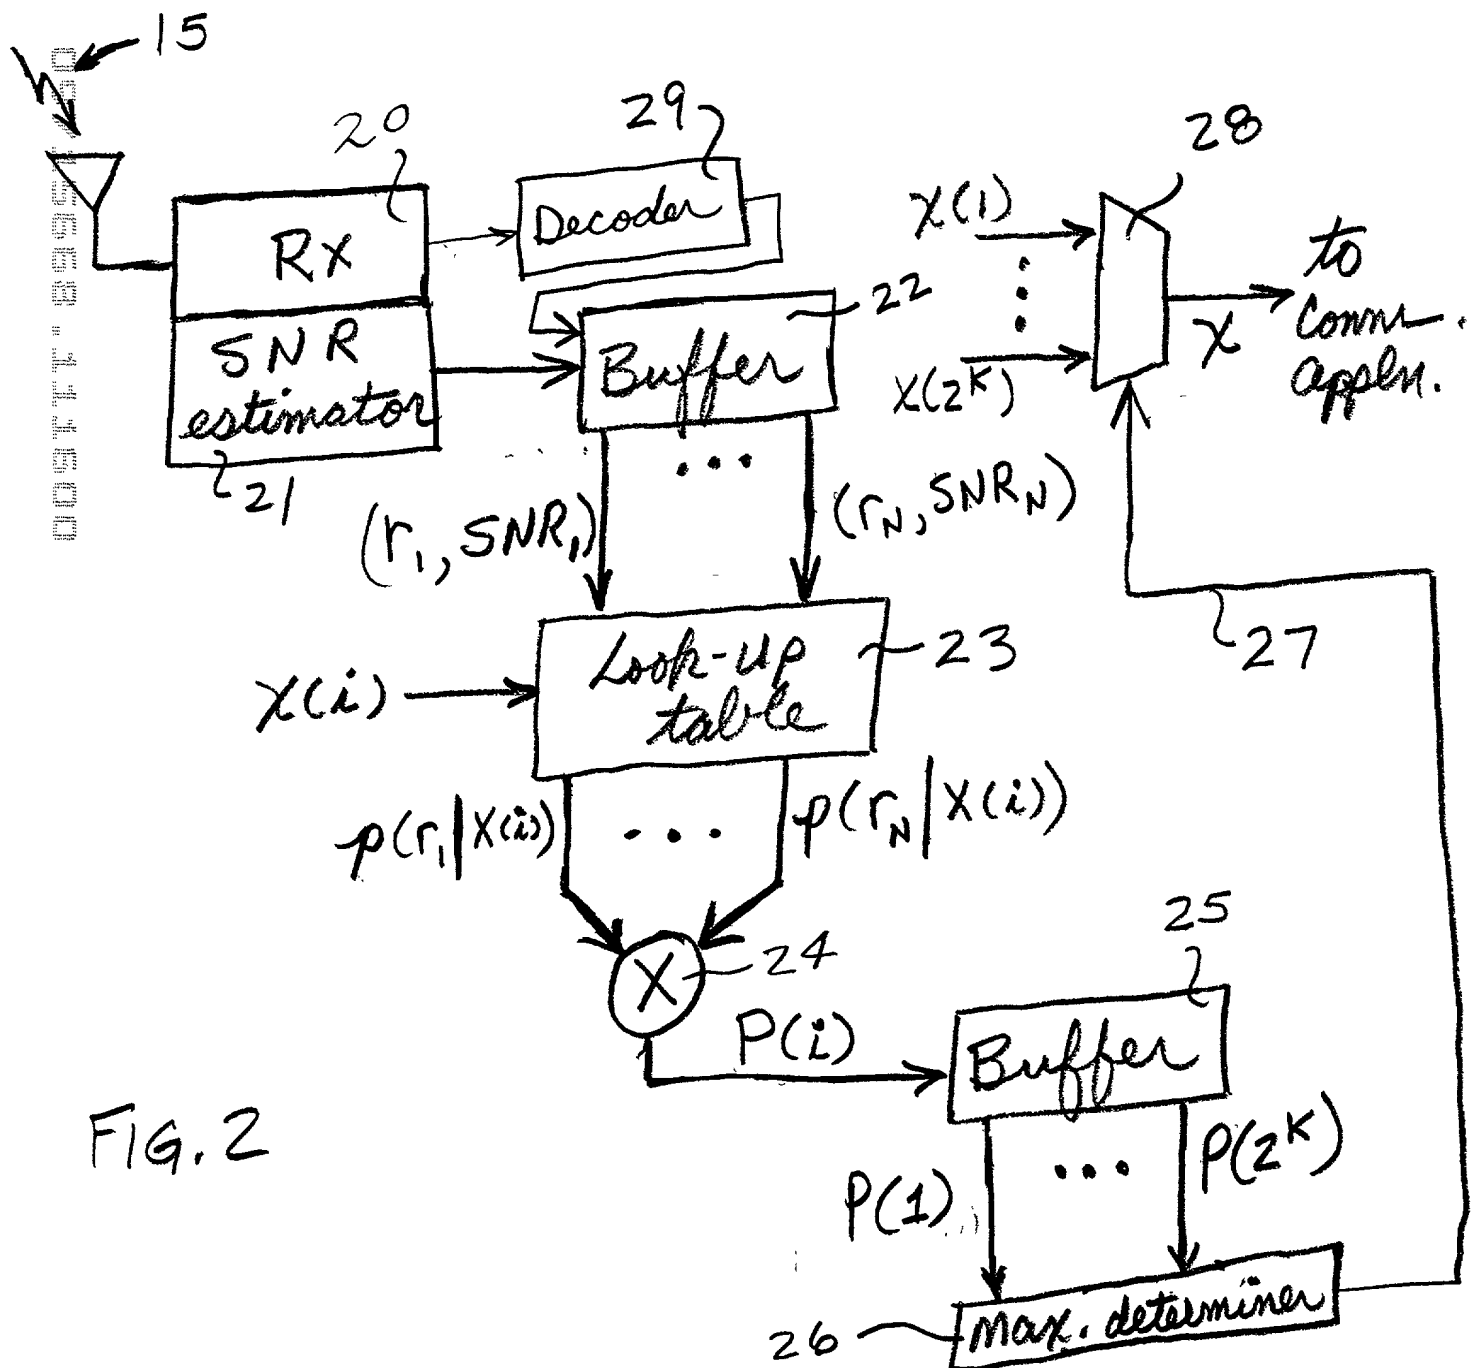 15
20
29
28
Rx
Decoder
χ(1)
to
comm.
appln.
SNR
estimator
22
Buffer
χ
χ(2^K)
21
(r₁, SNR₁)
(r_N, SNR_N)
χ(i)
Look-up
table
23
27
p(r₁|X(i))
p(r_N|X(i))
X
24
25
P(i)
Buffer
FIG. 2
P(1)
P(2^K)
26
Max. determiner